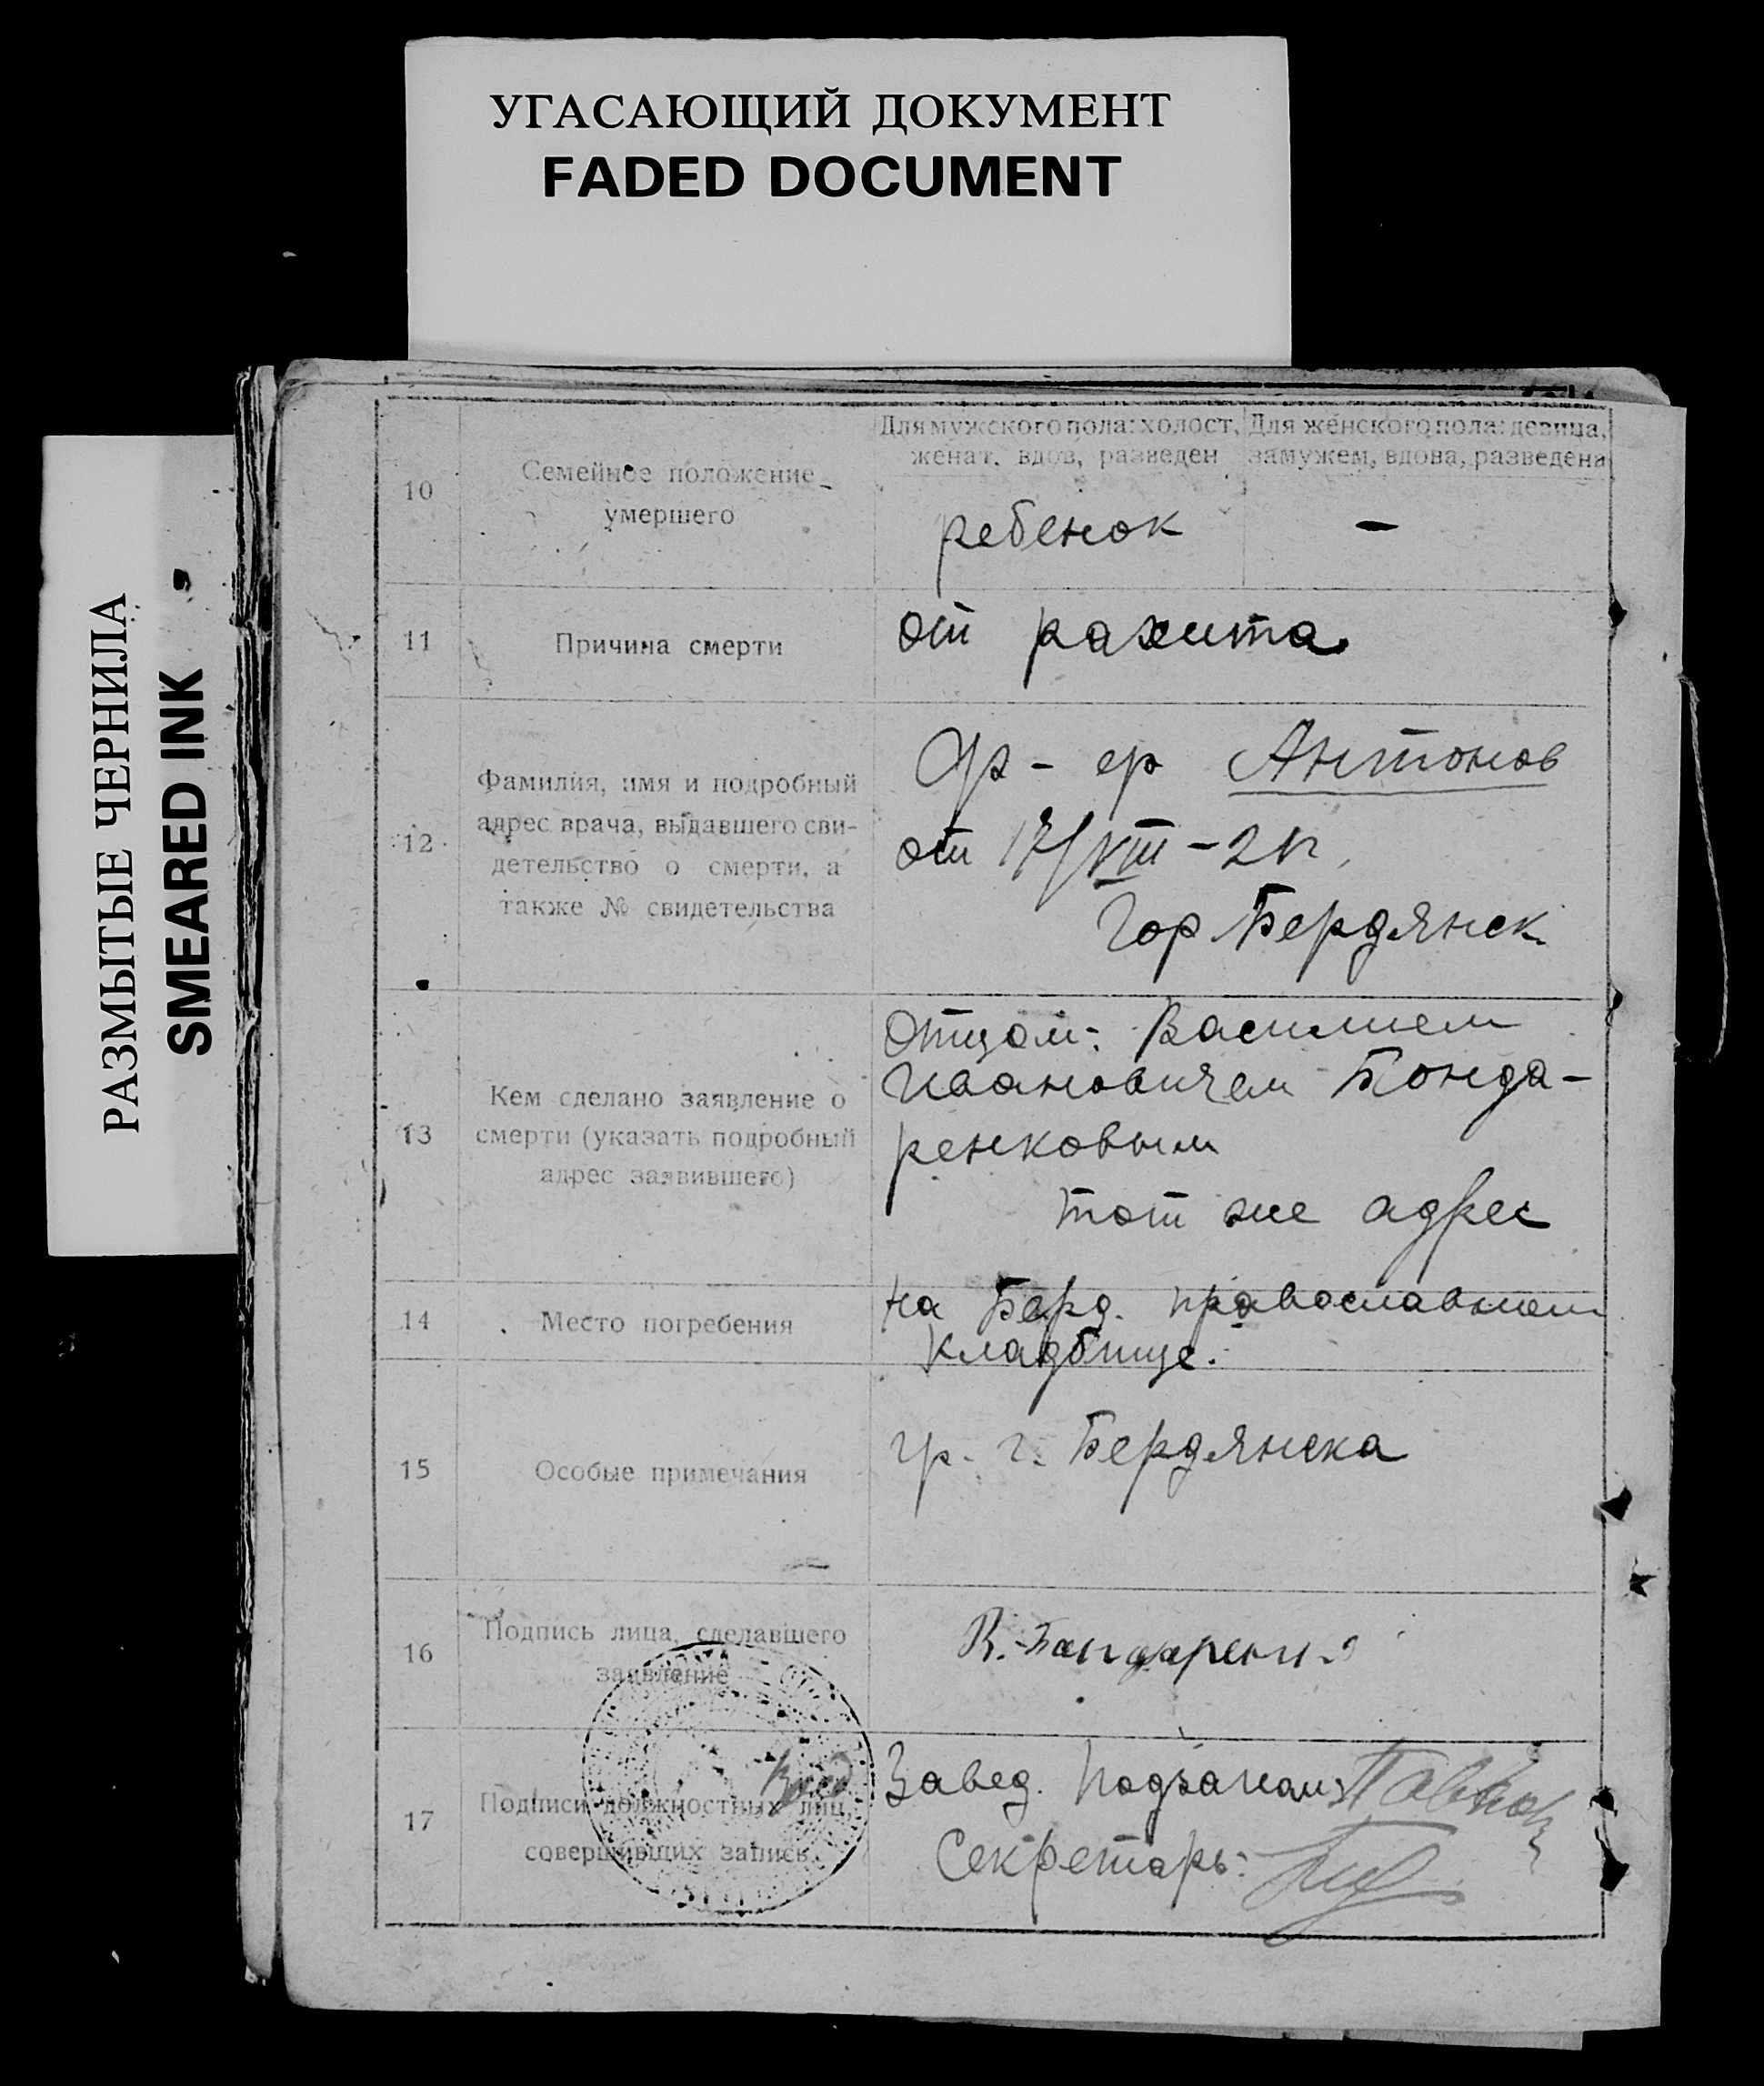 УГАСАЮЩИЙ ДОКУМЕНТ
FADED DOCUMENT
РАЗМЫТЫЕ ЧЕРНИЛА
SMEARED INK
10
Семейное положение
умершего
Для мужского пола: холост,
женат, вдов, разведен
Для женского пола: девица,
замужем, вдова, разведена
ребенок
–
11
Причина смерти
от рахита
12
Фамилия, имя и подробный
адрес врача, выдавшего сви-
детельство о смерти, а
также № свидетельства
Антонов
от 17/VIII – 2
Гор Бердянск
13
Кем сделано заявление о
смерти (указать подробный
адрес заявившего)
Отцом: Василием
Ивановичем Бонда-
ренковым
тот же адрес
14
Место погребения
на Берд. православном
кладбище.
15
Особые примечания
гр. г. Бердянска
16
Подпись лица, сделавшего
заявление
17
Подписи должностных лиц,
совершивших запись
Завед.
Секретарь: